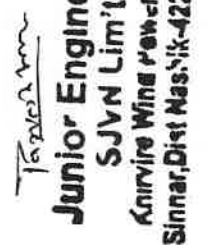 Junior Engine
SJVN Lim't
Khirvire Wind Powe
Sinnar,Dist Nashik-422